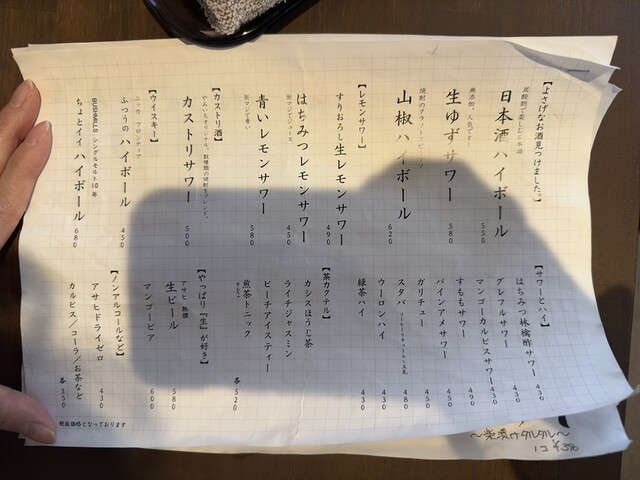 【よさげなお酒見つけました。】
炭酸割で楽しむ日本酒
日本酒ハイボール
550
無添加、人気です!
生ゆずサワー
580
山椒ハイボール
620
【レモンサワー】
すりおろし生レモンサワー
490
はちみつレモンサワー
※マジでジュース
450
青いレモンサワー
※マジで青い
580
【カストリ酒】
カストリサワー
500
【ウイスキー】
ニッカ フロンティア
ふつうのハイボール
450
BUSHMILLS シングルモルト10年
ちょとイイ ハイボール
680
【サワーとハイ】
はちみつ林檎酢サワー 430
グレフルサワー 430
マンゴーカルピスサワー 430
すももサワー 490
パインアメサワー 450
ガリチュー 450
スタバ 480
ウーロンハイ 430
緑茶ハイ 430
【茶カクテル】
カシスほうじ茶
ライチジャスミン
ピーチアイスティー
煎茶トニック
各520
【やっぱり『生』が好き】
アサヒ 熟撰
生ビール 580
マンゴービア 600
【ノンアルコールなど】
アサヒドライゼロ 430
カルピス/コーラ/お茶など 各350
税抜価格となっております